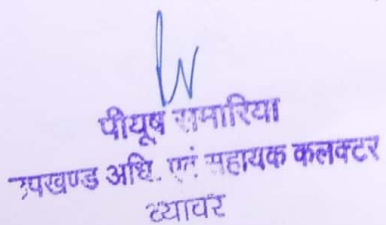 पीयूष समारिया
उपखण्ड अधि. एवं सहायक कलक्टर
ब्यावर